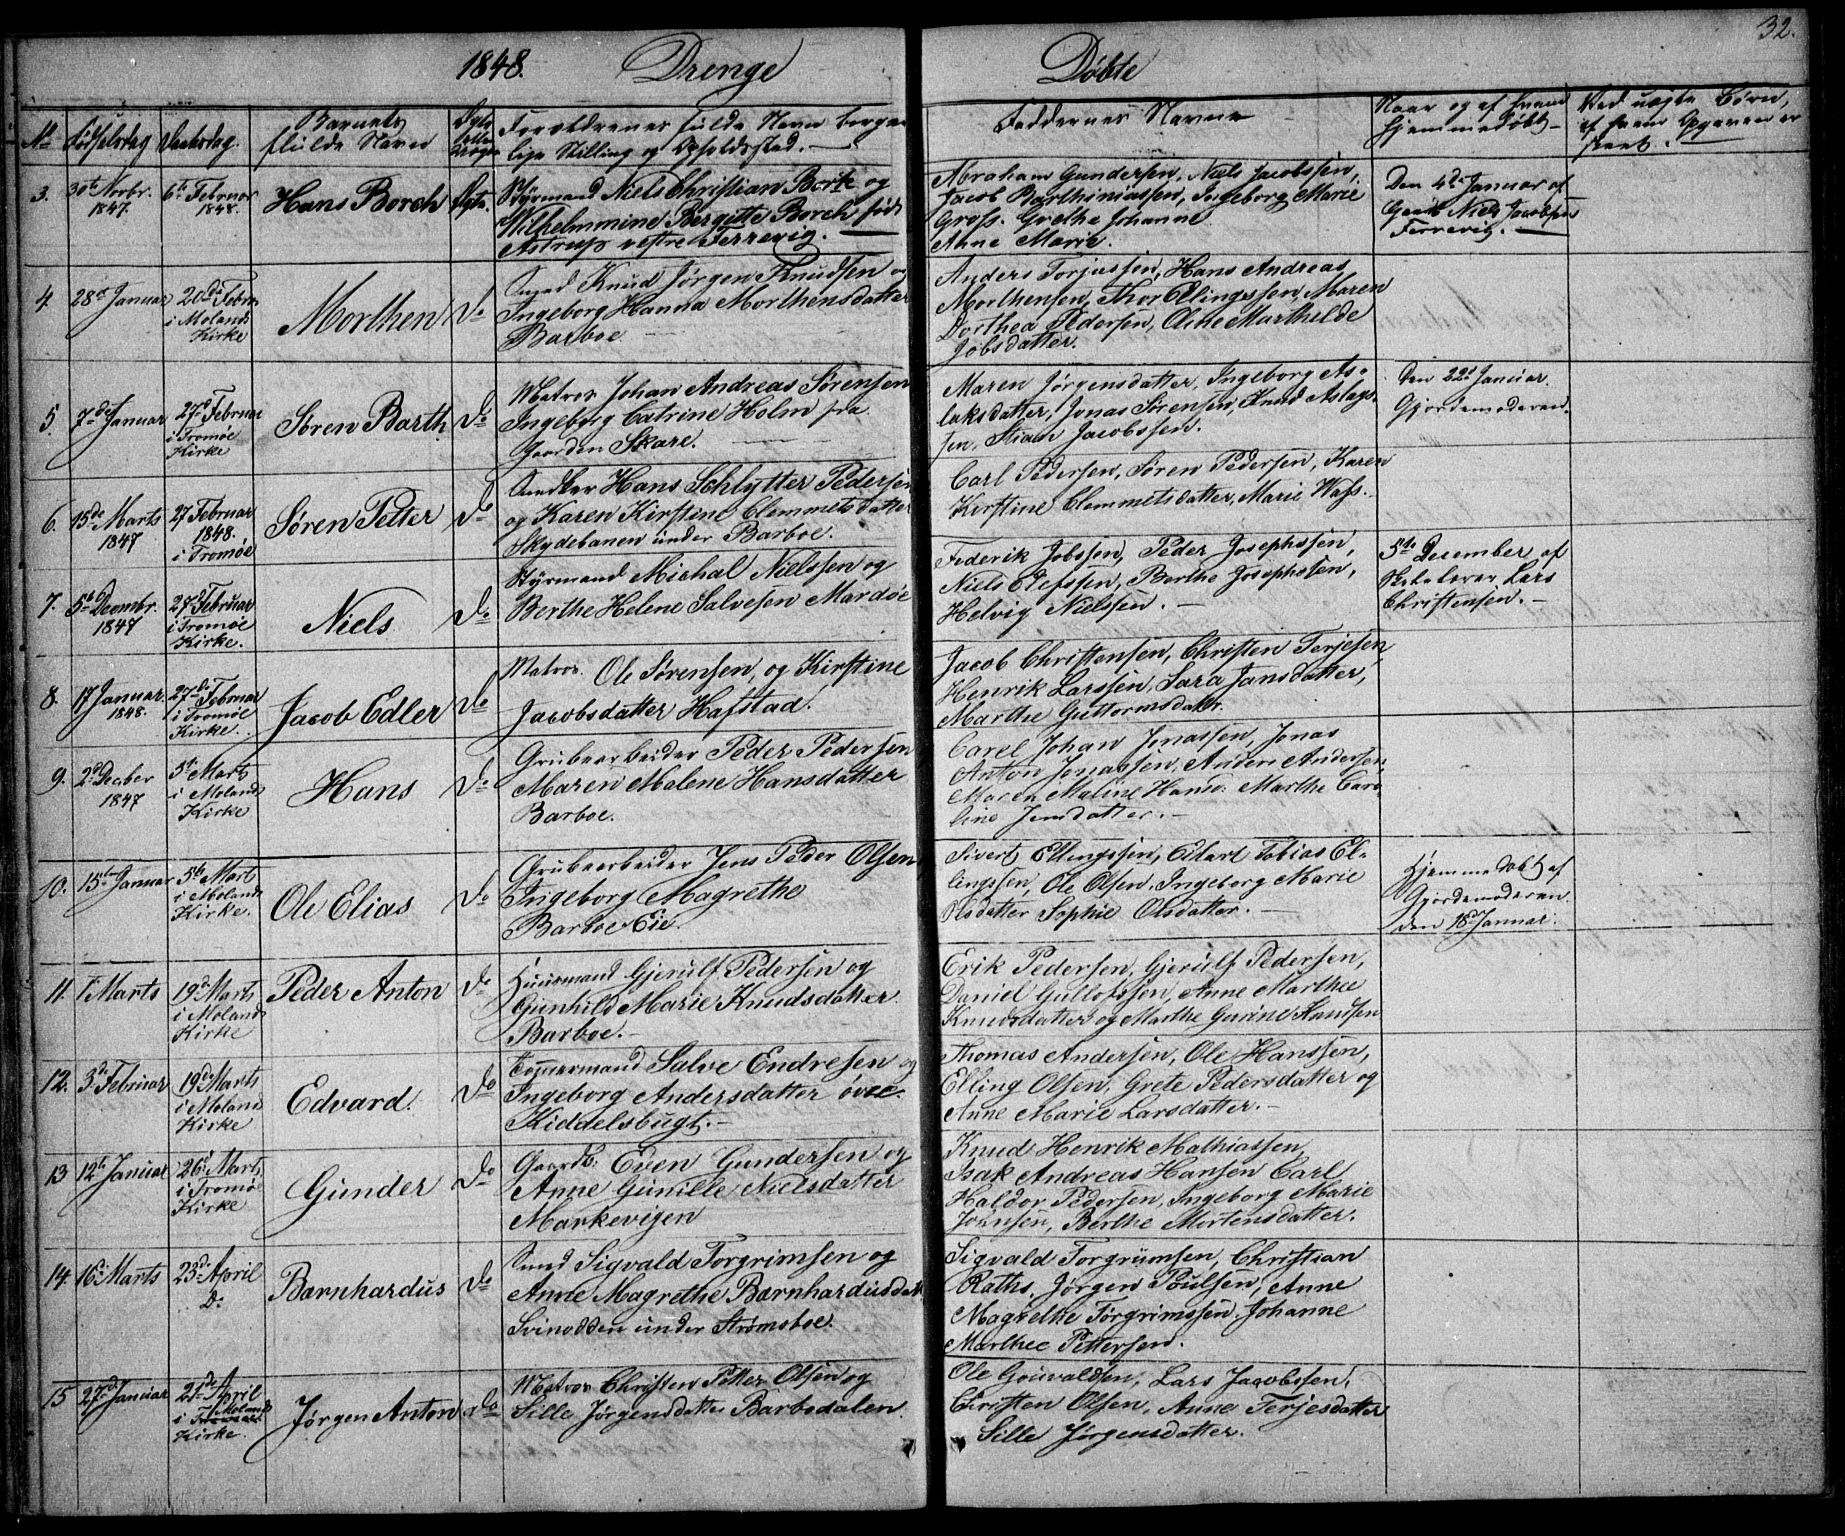 1848. Drenge Døbte 32.
No Fødselsdag Daabsdag. Barnets fulde Navn Ægte eller Uægte Forældrenes fulde Navn borgerlige Stilling og Opholdssted. Faddernes Navne Naar og af hvem hjemmedøbt Ved uægte Børn, af hvem Opgaven er skeet.
3. 30te Novbr. 1847. 6te Februar 1848. Hans Borch Ægte.
Styrmand Niels Christian Bork og
Wilhelmmine Bergette Borch født
Astrup vestre Færrevig.
Abraham Gundersen, Niels Jacobssen,
Jacob Barthiniassen, Ingeborg Marie
Gross. Grethe Johanne
Anne Marie.
Den 4de Januar af
Niels Jacobsen
Ferrevig.
4 28de Januar 20de Febru i Molands Kirke Morthen Do
Knud Jørgen Knudsen og
Ingeborg Hanna Morthensdatter
Barboe
Anders Torjussen, Hans Andreas
Morthensen, Thor Ellingssen, Maren
Dorthea Pedersen, Oline Marthilde
Jobsdatter.
5. 7de Januar 27de Februar i Tromøe Kirke Søren Barth. Do
Matros Johan Andreas Sørensen
Ingeborg Catrine Holm fra
Gaarden Skare.
Maren Jørgensdatter, Ingeborg As-
laksdatter, Jonas Sørensen, Knud Aslags-
sen, Stian Jacobssen.
Den 22de Januar.
Gjordemoderen.
6. 15de Marts 1847 27 Februar 1848. i Tromøe Søren Petter Do
Hans Schlytter Pedersen
og Karen Kirstine Clemmetsdatter
Skydebanen under Barboe.
Carl Pedersen, Søren Pedersen, Karen
Kirstine Clemmetsdatter, Marie Wass.
7. 5te Decembr. 1847 27de Februar i Tromøe Kirke. Niels Do
Styrmand Michal Nielssen og
Berthe Helene Salvesen Mardøe
Federik Jobssen, Peder Josephssen,
Niels Olefssen, Berthe Josephssen,
Helvig Nielssen.
5te December af
Skolelærer Lars
Christensen.
8. 17 Januar 1848. 27de Februar i Tromøe Kirke. Jacob Edler Do
Matros. Ole Sørensen, og Kirstine
Jacobsdatter Hafstad.
Jacob Christensen, Christen Terjesen,
Henrik Larssen, Sara Jansdatter,
Marthe Guttormsdattr.
9. 2de Decber 1847 5te Marts i Molands Kirke Hans Do
Grubearbeider Peder Pedersen
Maren Malene Hansdatter
Barboe.
Carel Johan Jonassen, Jonas
Anton Jonassen, Anders Andersen,
Maren Maline Hanss. Marthe Caro-
line Jensdatter.
10. 15de Januar 5te Marts i Molands Kirke. Ole Elias Do
Grubearbeider Jens Peder Olsen
Ingeborg Magrethe
Barboe Eie.
Sivert Ellingssen, Eilart Tobias El-
lingssen, Ole Olsen, Ingeborg Marie
Olsdatter Sophie Olsdatter.
Hjemmedøbt af
Gjordemoderen
den 18de Januar.
11. 1te Marts 19de Marts i Molands Kirke Peder Anton Do
Huusmand Gjerulf Pedersen og
Gunhild Marie Knudsdatter
Barboe.
Erik Pedersen, Gjerulf Pedersen,
Daniel Gullofssen, Anne Marthee
Knudsdatter og Marthe Gurine Knudsen
12. 3de Februar 19de Marts i Moland Kirke Edvard. Do
Tømmermand Salve Endresen og
Ingeborg Andersdatter øvre
Kiddelsbugt.
Thomas Andersen, Ole Hanssen,
Elling Olsen, Grete Pedersdatter og
Anne Marie Larsdatter.
13 12te Januar 26de Marts i Tromøe Kirke Gunder Do
Gaardb. Even Gundersen og
Anne Gunille Nielsdatter
Markevigen
Knud Henrik Mathiassen,
Isak Andreas Hansen Carl
Haldor Pedersen, Ingeborg Marie
Johnsen, Berthe Mortensdatter.
14. 16de Marts 23de April Do Barnhardus Do
Sigvald Torgrimsen og
Anne Magrethe Barnhardusdat
Svinodden under Strømsboe.
Sigvald Torgrimsen, Christian
Raths, Jørgen Poulsen, Anne
Magrethe Torgrimssen, Johanne
Marthee Pettersen.
15 27de Januar 21de April i Tromøe Molands Kirke. Jørgen Anton Do
Matros Christen Petter Olsen og
Sille Jørgensdatter Barbodalen.
Ole Grunvaldsen, Lars Jacobssen,
Christen Olsen, Anne Terjesdatter
Sille Jørgensdatter.